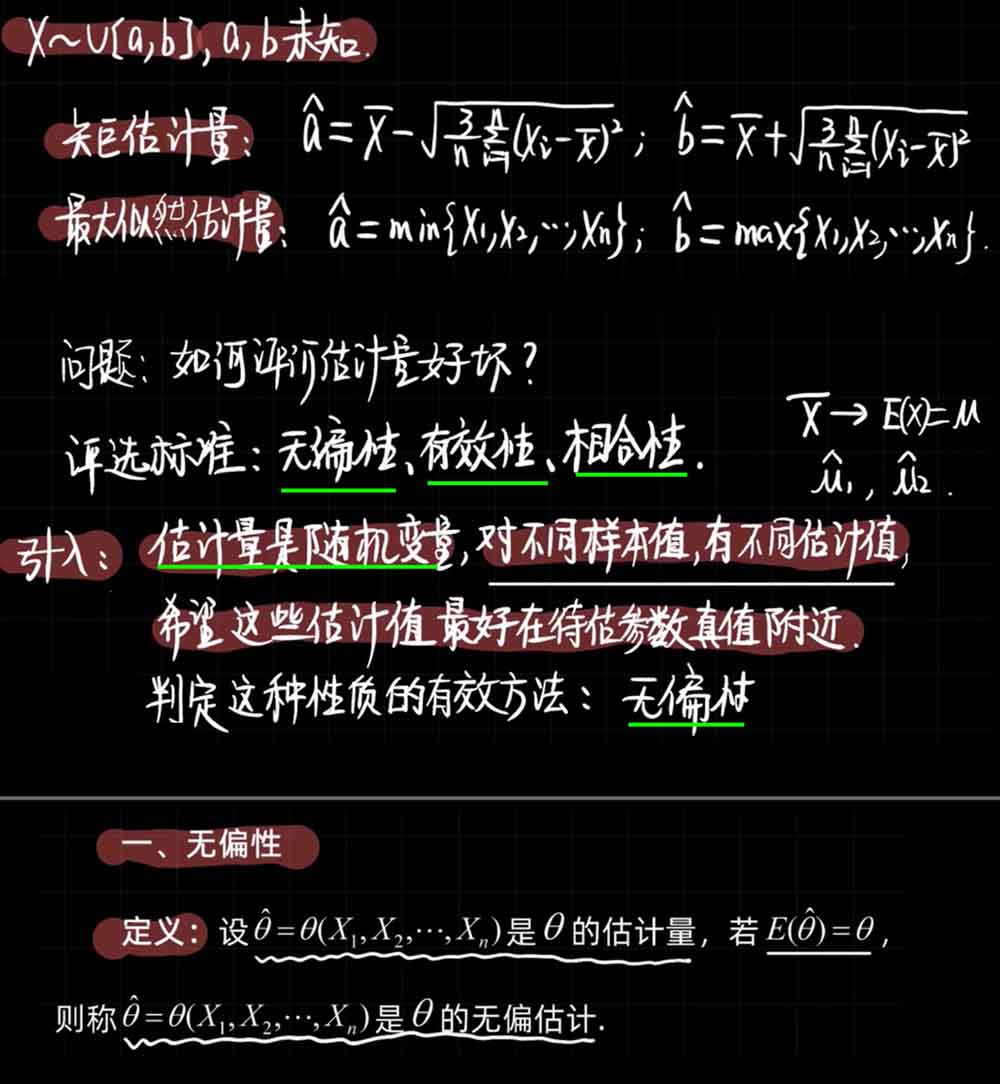 X~U[a,b], a,b未知.
矩估计量: â = X̄ - √(3/n ∑ᵢ₌₁ⁿ (Xᵢ - X̄)²); b̂ = X̄ + √(3/n ∑ᵢ₌₁ⁿ (Xᵢ - X̄)²)
最大似然估计量: â = min{X₁,X₂,…,Xₙ}; b̂ = max{X₁,X₂,…,Xₙ}.
问题: 如何评价估计量好坏?
X̄ → E(X)=μ
评选标准: 无偏性、有效性、相合性.
μ̂₁, μ̂₂.
引入: 估计量是随机变量, 对不同样本值, 有不同估计值,
希望这些估计值最好在待估参数真值附近.
判定这种性质的有效方法: 无偏性
一、无偏性
定义: 设 θ̂ = θ(X₁, X₂, ⋯, Xₙ) 是 θ 的估计量, 若 E(θ̂) = θ,
则称 θ̂ = θ(X₁, X₂, ⋯, Xₙ) 是 θ 的无偏估计.